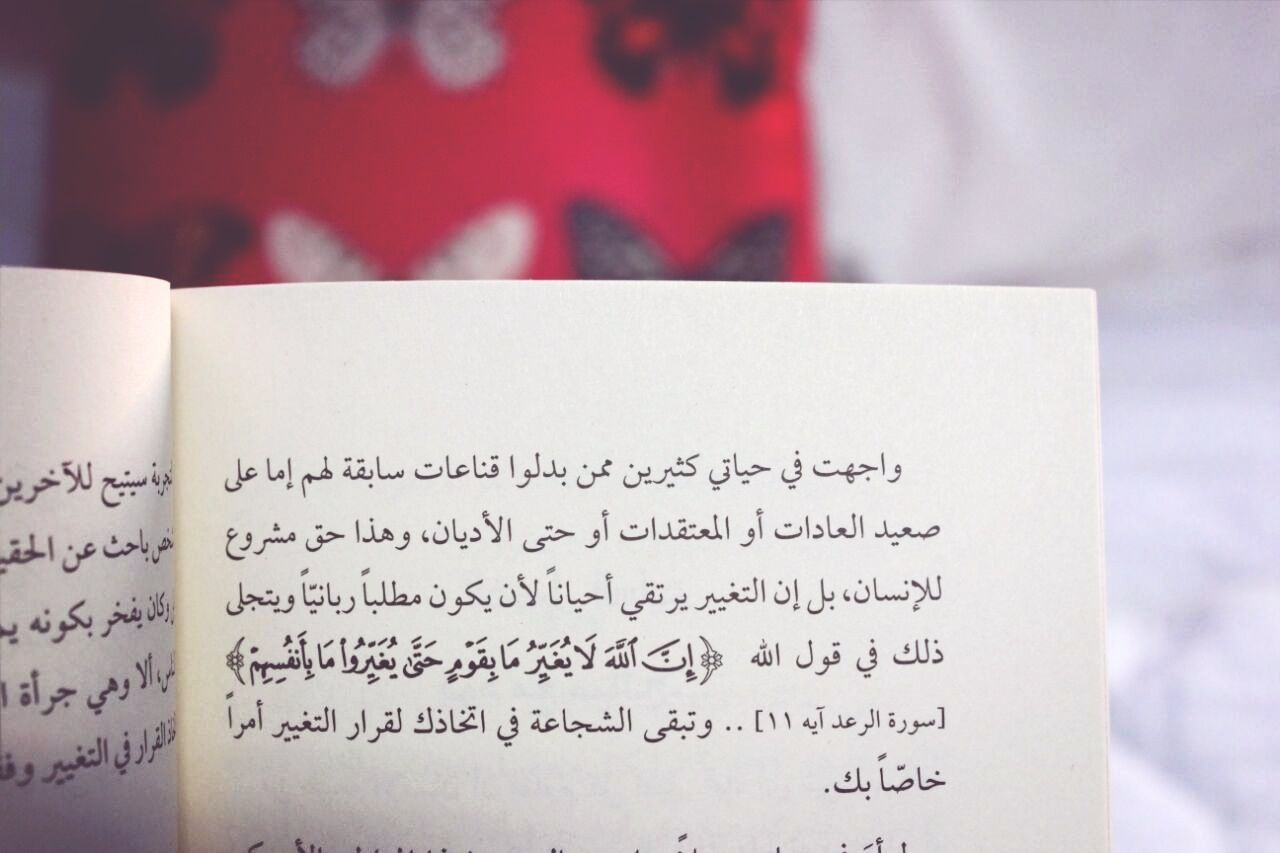 واجهت في حياتي كثيرين ممن بدلوا قناعات سابقة لهم إما على
صعيد العادات أو المعتقدات أو حتى الأديان، وهذا حق مشروع
للإنسان، بل إن التغيير يرتقي أحياناً لأن يكون مطلباً ربانيّاً ويتجلى
ذلك في قول الله ﴿إِنَّ ٱللَّهَ لَا يُغَيِّرُ مَا بِقَوْمٍ حَتَّىٰ يُغَيِّرُوا۟ مَا بِأَنفُسِهِمْ﴾
[سورة الرعد آيه ١١] .. وتبقى الشجاعة في اتخاذك لقرار التغيير أمراً
خاصّاً بك.
سيتيح للآخرين
باحث عن
وكان يفخر بكونه
ألا وهي جرأة
القرار في التغيير